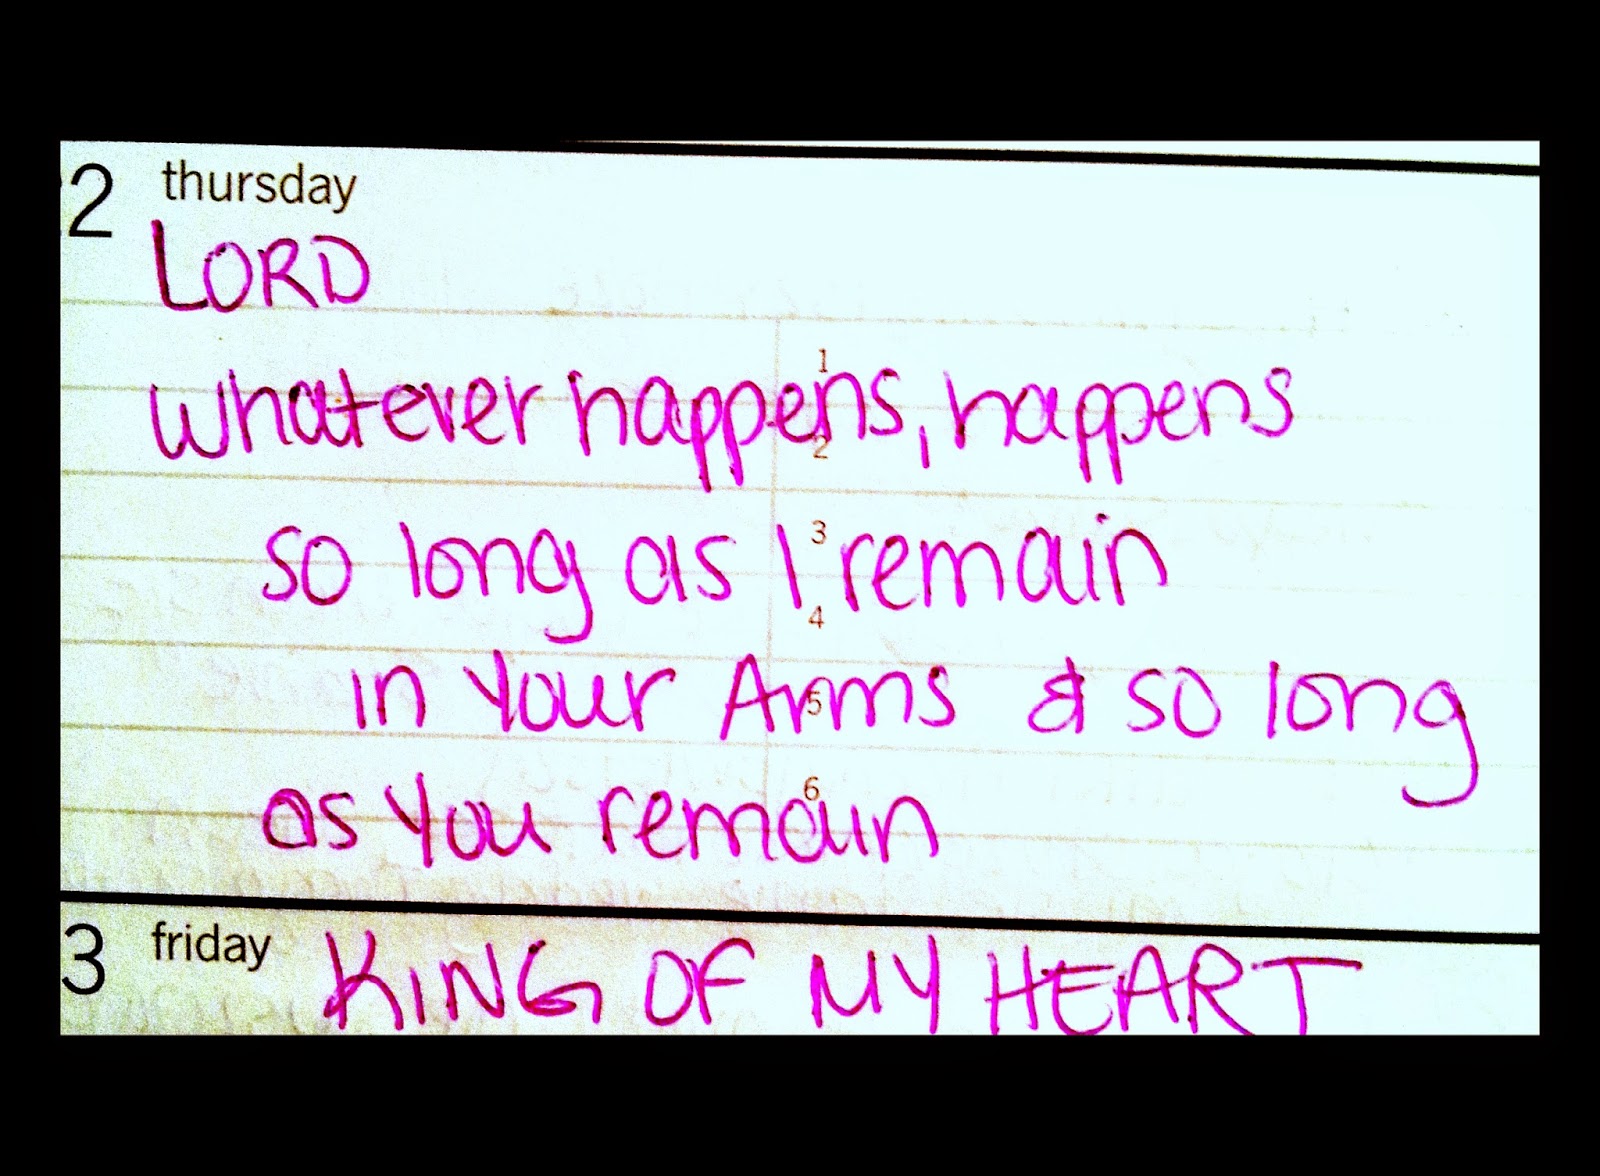 2 thursday
LORD
1
whatever happens, happens
2
3
so long as I remain
4
in Your Arms & so long
5
6
as You remain
3 friday KING OF MY HEART